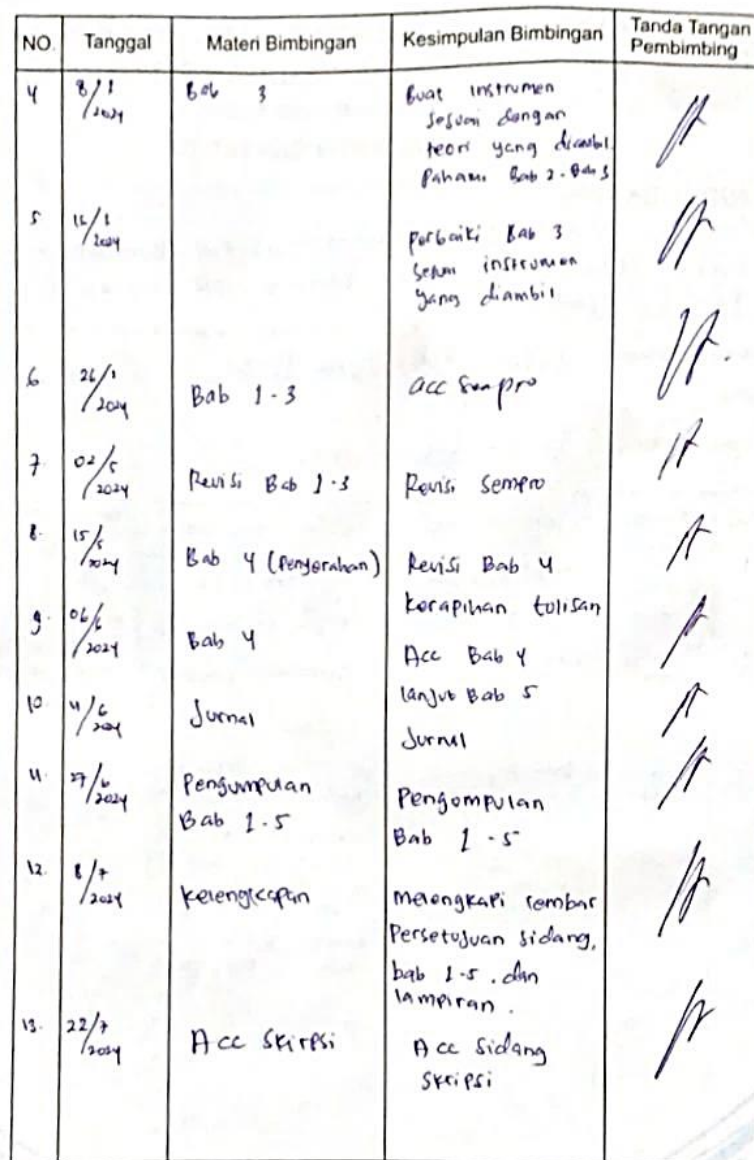 NO. Tanggal Materi Bimbingan Kesimpulan Bimbingan Tanda Tangan Pembimbing
4 8/1 2024 Bab 3 Buat instrumen
sesuai dengan
teori yang diambil.
Pahami Bab 2 - Bab 3
5 16/1 2024 Perbaiki Bab 3
sesuai instrumen
yang diambil
6 26/1 2024 Bab 1-3 acc Sempro
7. 02/5 2024 Revisi Bab 1-3 Revisi Sempro
8. 15/5 2024 Bab 4 (Penyerahan) Revisi Bab 4
kerapihan tulisan
9. 06/6 2024 Bab 4 Acc Bab 4
lanjut Bab 5
10. 11/6 2024 Jurnal Jurnal
11. 27/6 2024 Pengumpulan Pengumpulan
Bab 1-5 Bab 1-5
12. 8/7 2024 kelengkapan melengkapi lembar
Persetujuan sidang,
bab 1-5. dan
lampiran.
13. 22/7 2024 Acc Skripsi Acc Sidang
Skripsi